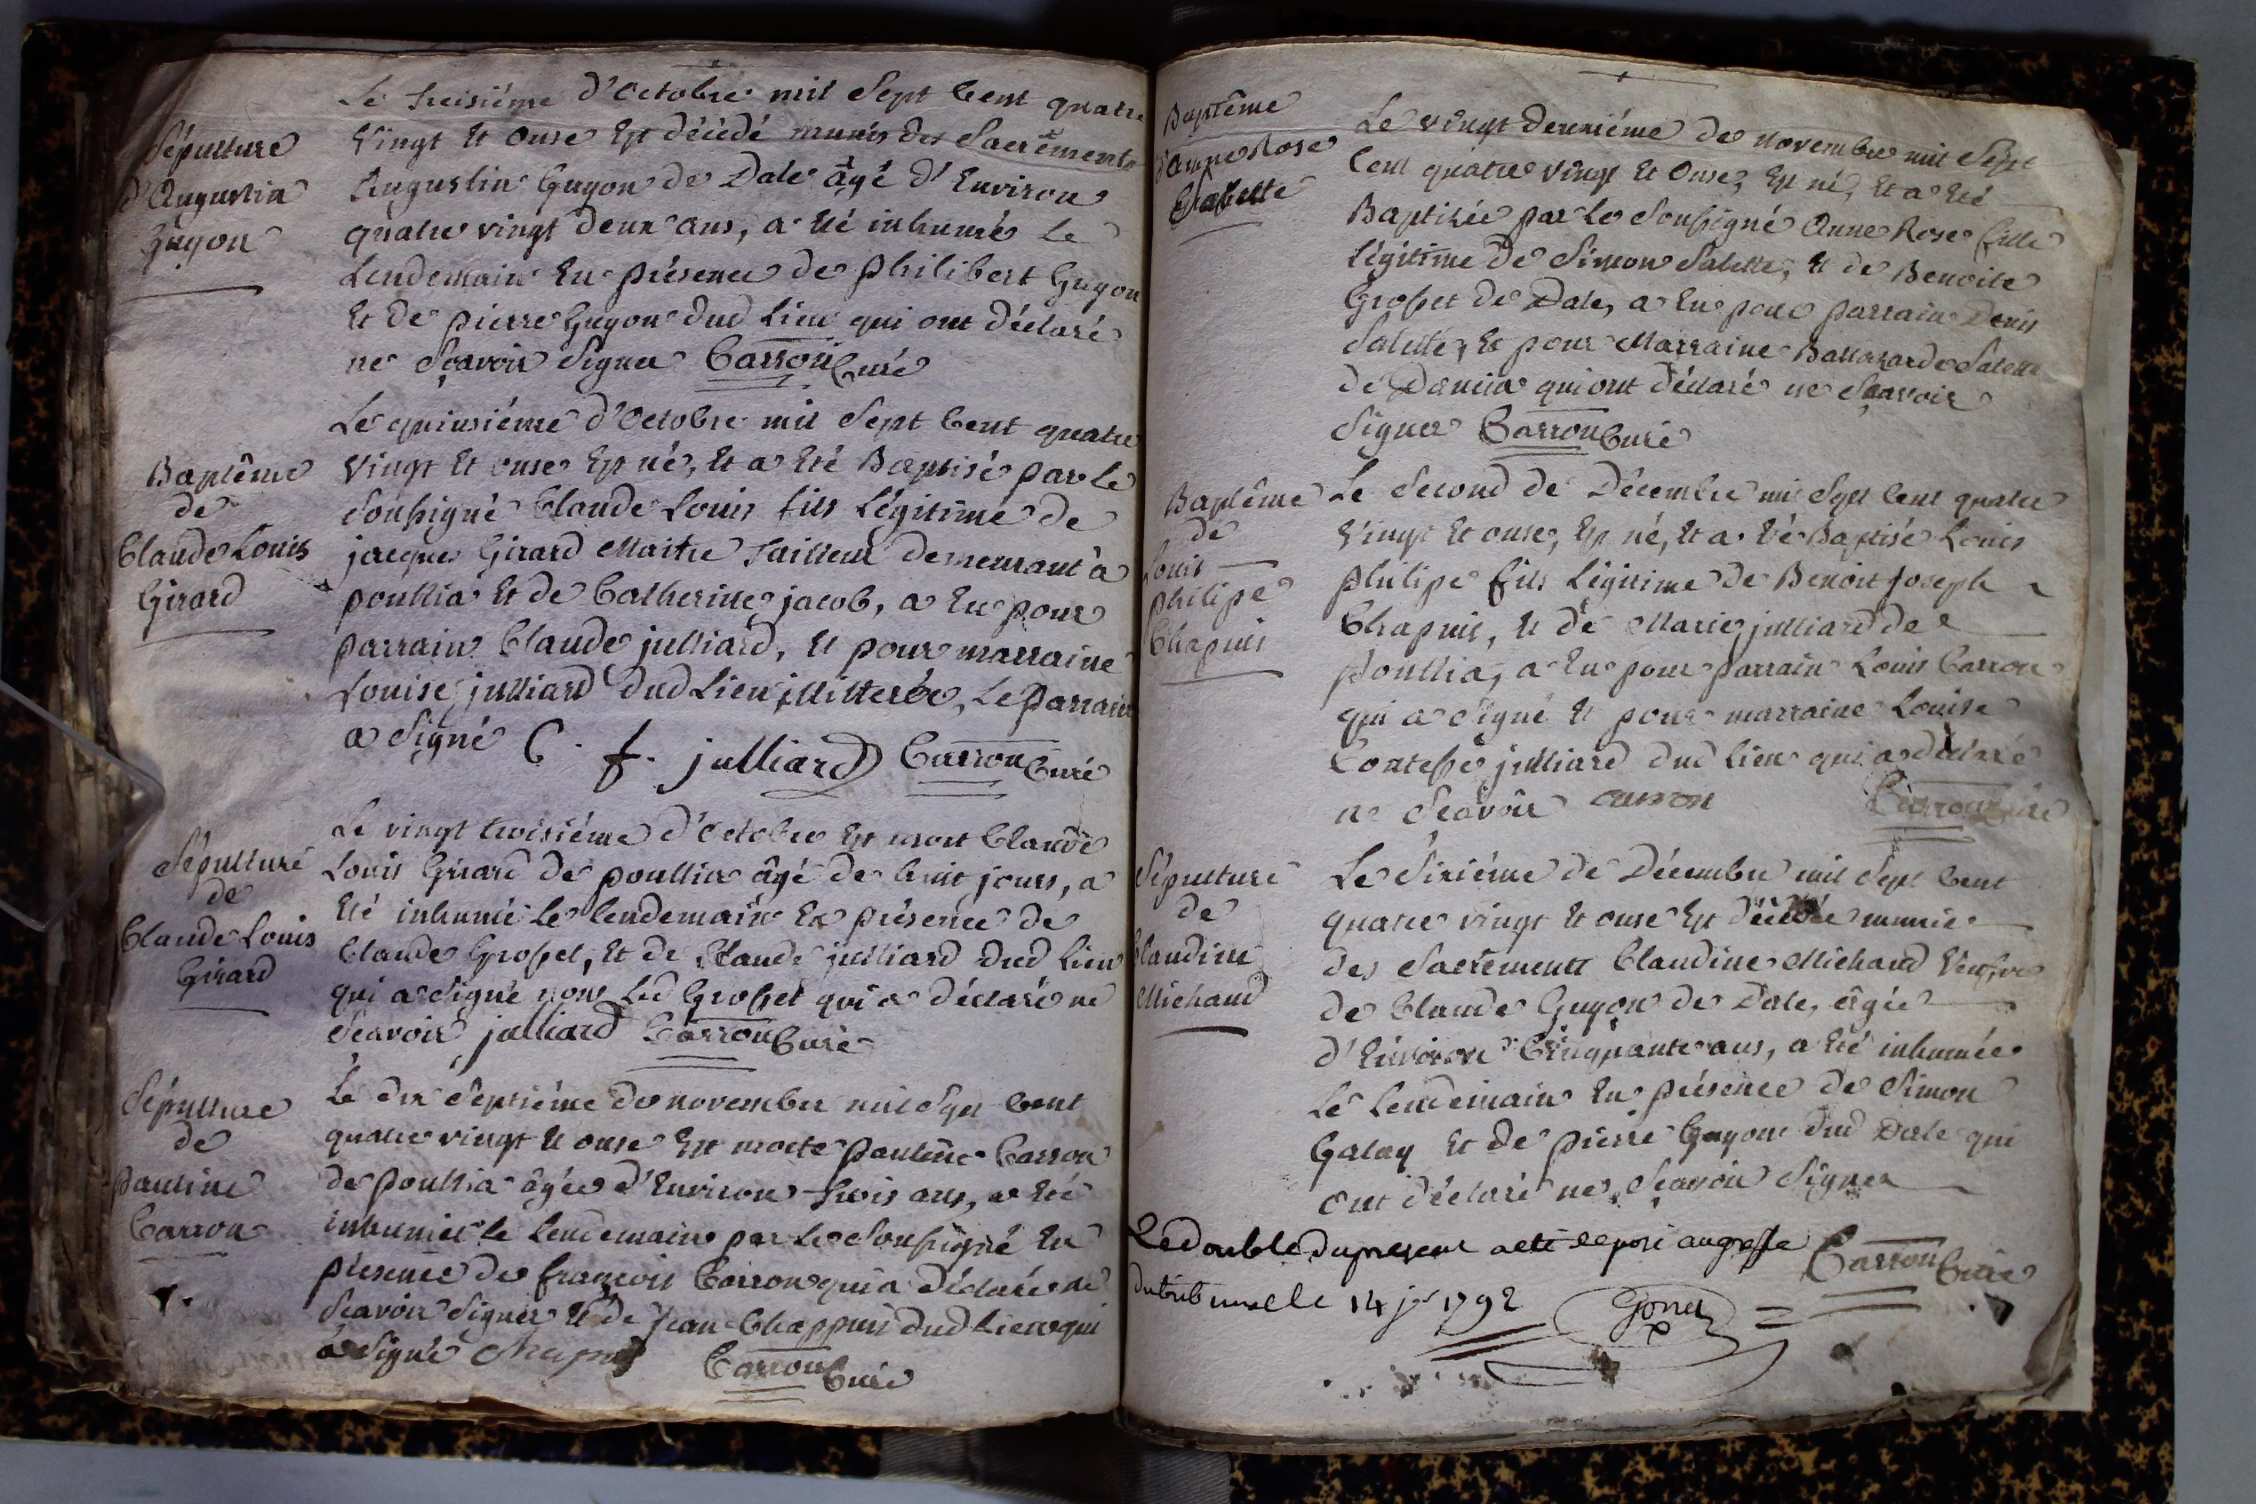 Le treisiéme d'Octobre mil Sept Cent quatre
Sépulture
d'Augustin
Guyon
Vingt Et Onse Est décédé munis des Sacréments
Augustin Guyon de Dale âgé d'Environ
quatre vingt deux ans, a été inhumé Le
Lendemain En présence de philibert Guyon
Et de pierre Guyon dud Lieu qui ont déclaré
ne Sçavoir Signer Carron Curé
Le quinsiéme d'Octobre mil Sept Cent quatre
Baptême
de
Claude Louis
Girard
Vingt Et onse Est né, Et a Eté Baptisé par Le
Soussigné Claude Louis fils Légitime de
jacques Girard Maitre Tailleur demeurant à
poullia Et de Catherine jacob, a Eu pour
parrain Claude julliard, Et pour marraine
Louise julliard dud Lieu illitterée, Le Parrain
a Signé C. f. julliard Carron Curé
Le vingt troisiéme d'Octobre Est mort Claude
Sépulture
de
Claude Louis
Girard
Louis Girard de poullia âgé de huit jours, a
Eté inhumé Le lendemain En présence de
Claude Grosset, Et de Claude julliard dud Lieu
qui a signé non Led Grosset qui a déclaré ne
Scavoir julliard Carron Curé
Le dix Septiéme de november mil Sept Cent
Sépulture
de
pauline
Carron
quatre vingt Et onse Est morte pauline Carron
de poullia âgée d'Environ trois ans, a Eté
inhumée le lendemain par Le Soussigné En
présence de françois Carron qui a déclaré ne
Scavoir Signer Et de Jean Chappuis dud Lieu qui
a Signé Chapuis Carron Curé
Baptême
d'Anne Rose
Salette
Le vingt deuxiéme de novembre mil Sept
Cent quatre Vingt Et Onse, Est né, Et a Eté
Baptisée par Le Soussigné Anne Rose fille
légitime de Simon Salette, Et de Benoite
Grosset de Dale, a Eu pour parrain Denis
Salette, Et pour Marraine Baltazarde Salette
de qui ont déclaré ne Sçavoir
Signer Carron Curé
Baptême
de
Louis
philipe
Chapuis
Le Second de Décembre mil Sept Cent quatre
Vingt Et onse, Est né, Et a Eté Baptisé Louis
philipe fils Légitime de Benoit Joseph
Chapuis, Et de Marie julliard de
poullia, a Eu pour parrain Louis Carron
qui a Signé Et pour marraine Louise
Comtesse julliard dud Lieu qui a déclaré
ne Scavoir carron Carron Curé
Sépulture
de
Claudine
Michaud
Le Sixiéme de Décembre mil Sept Cent
quatre vingt Et onse Est décédée munie
des Sacréments Claudine Michaud Veufve
de Claude Guyon de Dale, âgée
d'Environ Cinquante ans, a Eté inhumée
Le Lendemain En présence de Simon
Galay Et de pierre Guyon dud Dale qui
ont déclaré ne Scavoir Signer
Le double du present acte deposé au greffe
Carron Curé
du tribunal le 14 jer 1792